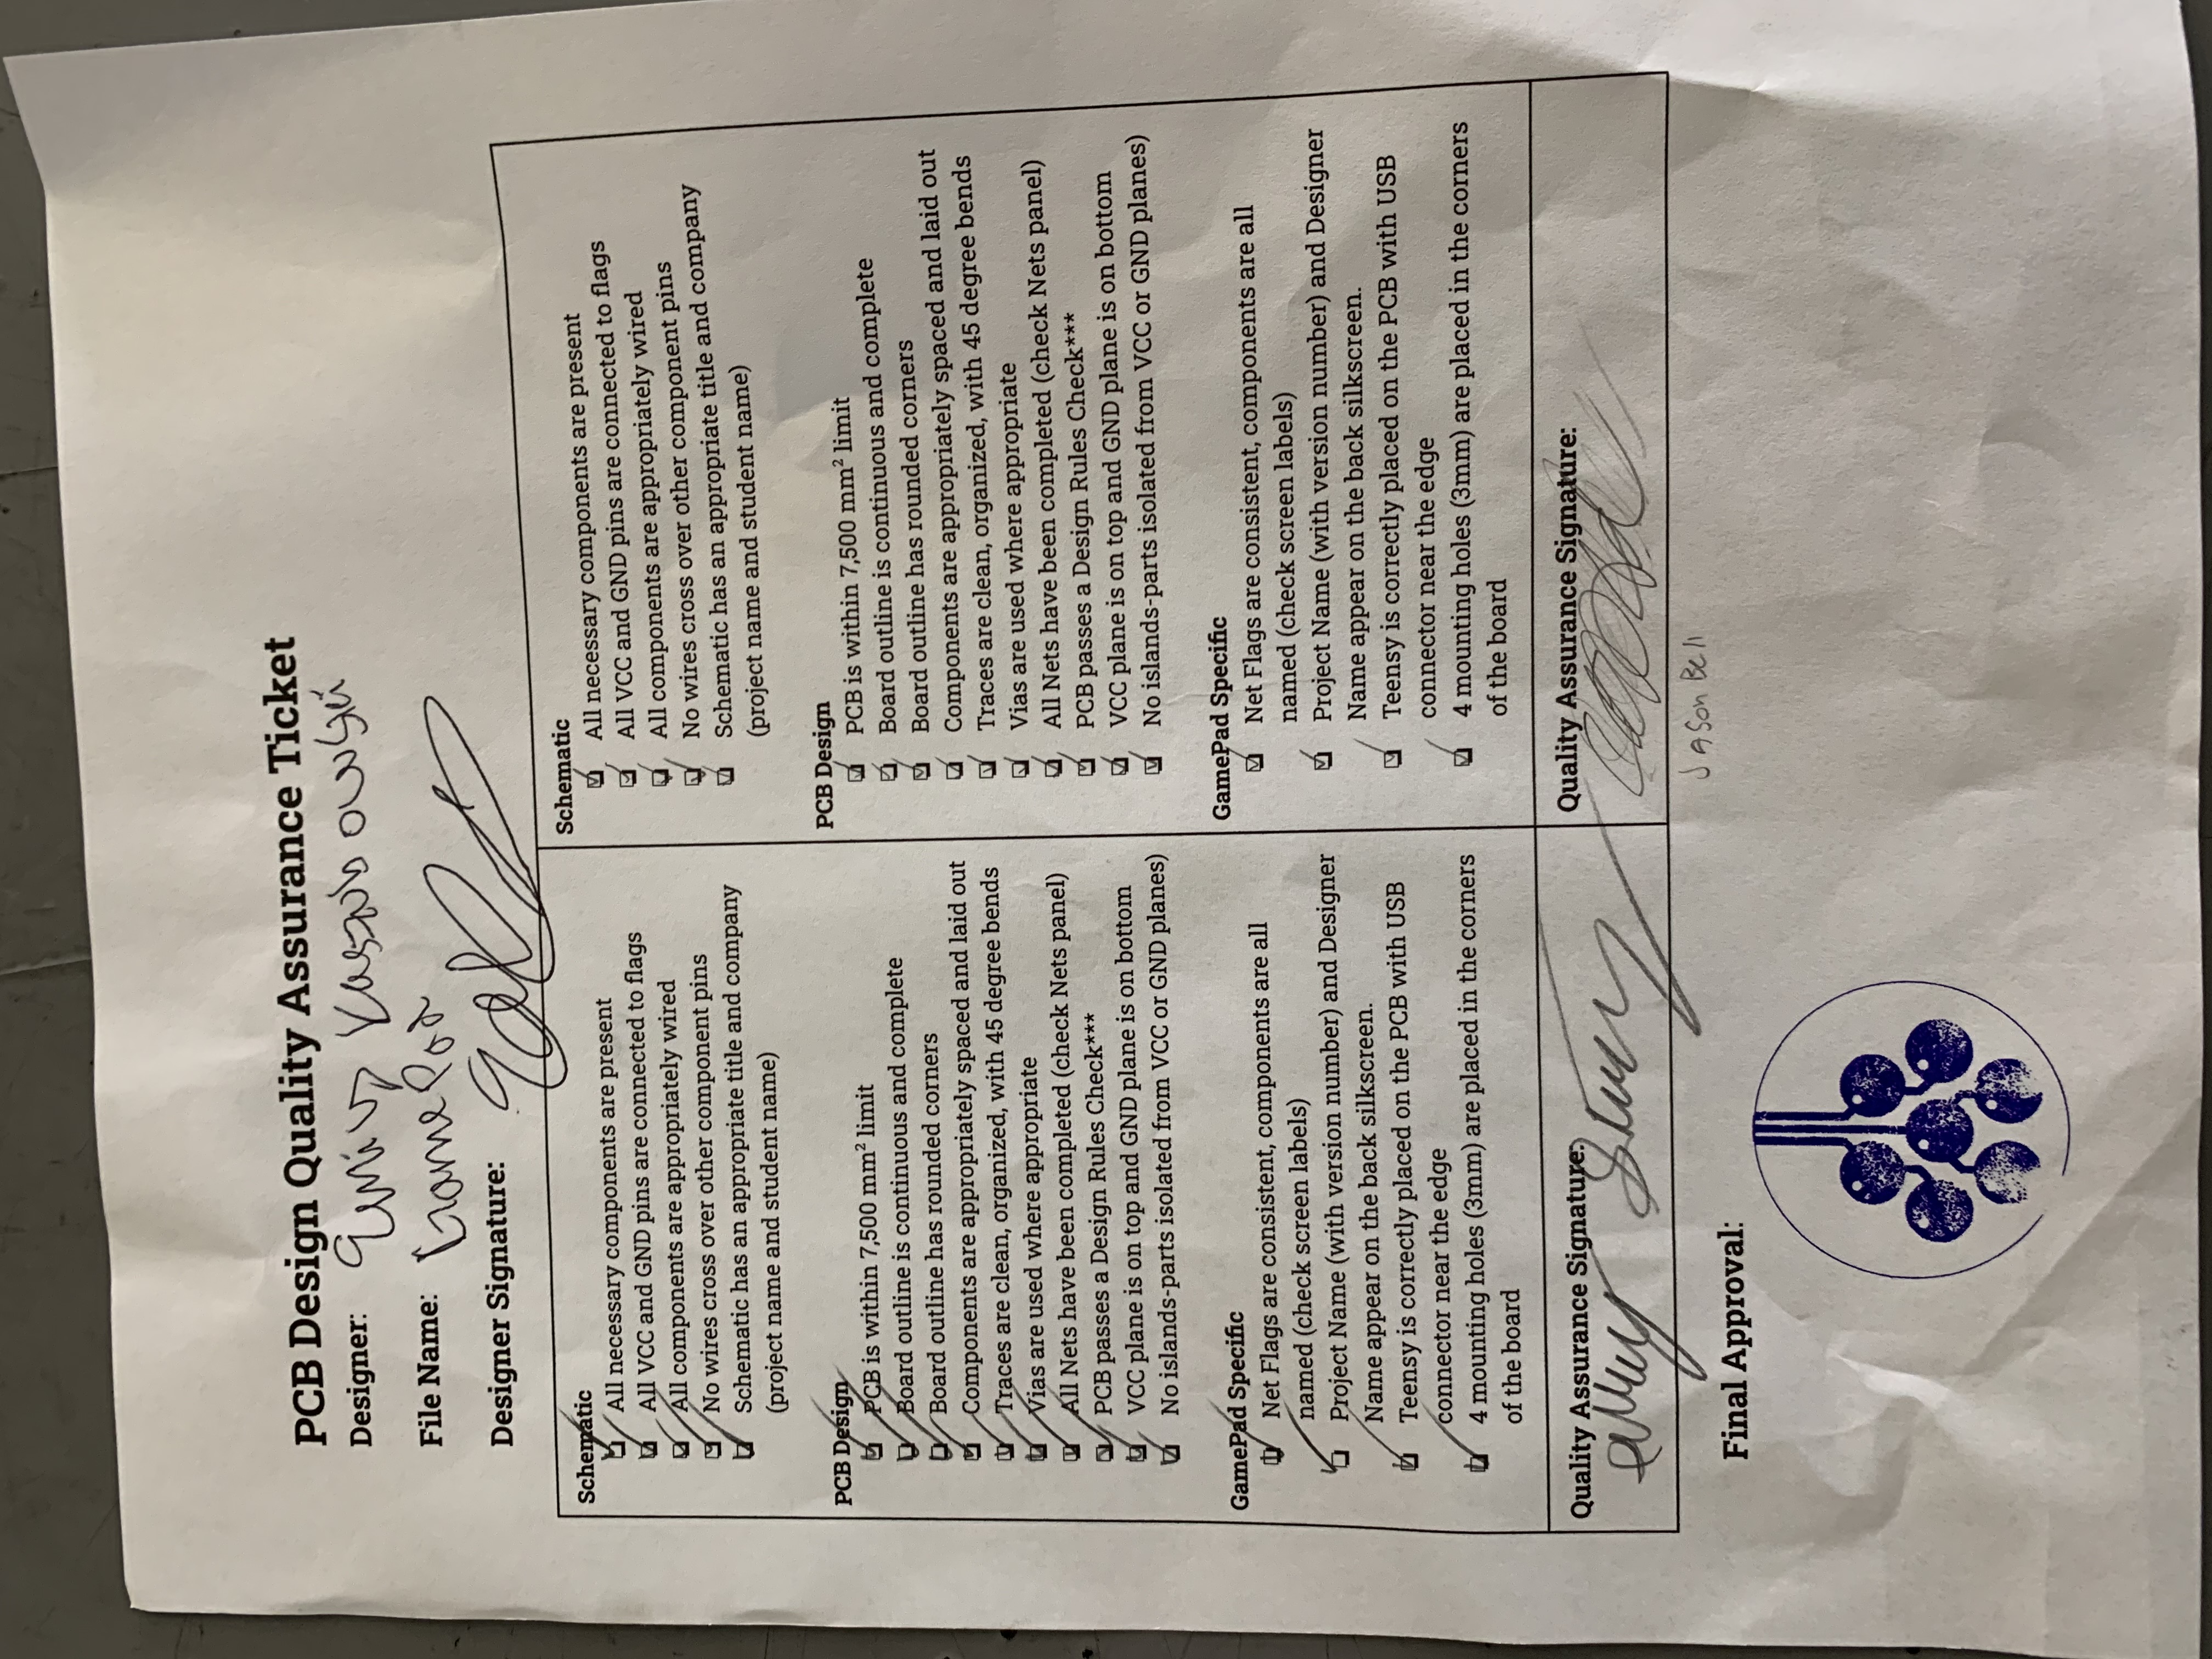 PCB Design Quality Assurance Ticket
Designer: Emily Kaszubowski
File Name: GamePad
Designer Signature:
Schematic
All necessary components are present
All VCC and GND pins are connected to flags
All components are appropriately wired
No wires cross over other component pins
Schematic has an appropriate title and company
(project name and student name)
PCB Design
PCB is within 7,500 mm² limit
Board outline is continuous and complete
Board outline has rounded corners
Components are appropriately spaced and laid out
Traces are clean, organized, with 45 degree bends
Vias are used where appropriate
All Nets have been completed (check Nets panel)
PCB passes a Design Rules Check***
VCC plane is on top and GND plane is on bottom
No islands-parts isolated from VCC or GND planes)
GamePad Specific
Net Flags are consistent, components are all
named (check screen labels)
Project Name (with version number) and Designer
Name appear on the back silkscreen.
Teensy is correctly placed on the PCB with USB
connector near the edge
4 mounting holes (3mm) are placed in the corners
of the board
Quality Assurance Signature:
Schematic
All necessary components are present
All VCC and GND pins are connected to flags
All components are appropriately wired
No wires cross over other component pins
Schematic has an appropriate title and company
(project name and student name)
PCB Design
PCB is within 7,500 mm² limit
Board outline is continuous and complete
Board outline has rounded corners
Components are appropriately spaced and laid out
Traces are clean, organized, with 45 degree bends
Vias are used where appropriate
All Nets have been completed (check Nets panel)
PCB passes a Design Rules Check***
VCC plane is on top and GND plane is on bottom
No islands-parts isolated from VCC or GND planes)
GamePad Specific
Net Flags are consistent, components are all
named (check screen labels)
Project Name (with version number) and Designer
Name appear on the back silkscreen.
Teensy is correctly placed on the PCB with USB
connector near the edge
4 mounting holes (3mm) are placed in the corners
of the board
Quality Assurance Signature:
Jason Bell
Final Approval: